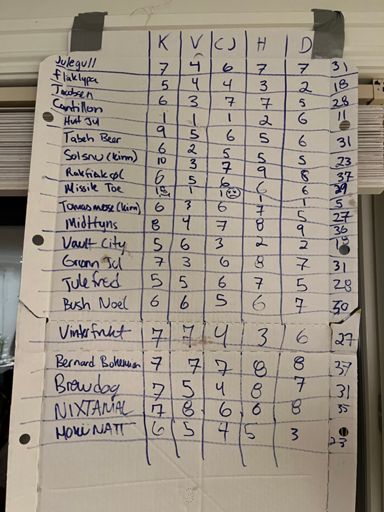 K V CJ H D
Julegull 7 4 6 7 7 31
Flaklypa 5 4 4 3 2 18
Jacobsen 6 3 7 7 5 28
Cantillon 1 1 1 2 6 11
Hvit Jul 9 5 6 5 6 31
Tabeh Beer 6 2 5 5 5 23
Solsnu (kinn) 10 3 7 9 8 37
Rakfiskøl 6 5 6 6 6 29
Missile Toe 1 1 1 1 5
(kinn) 6 3 6 7 5 27
Midttyns 8 4 7 8 9 36
Vault City 5 6 3 2 2 18
Grann Jul 7 3 6 8 7 31
Julefred 5 5 6 7 5 28
Bush Noel 6 6 5 6 7 30
7 7 4 3 6 27
Bernard Bohemian 7 7 7 8 8 37
Brewdog 7 5 4 8 7 31
NIXTAMAL 7 8 6 6 8 35
NATT 6 5 4 5 3 23